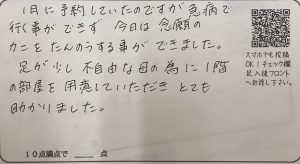 1月に予約していたのですが急病で
行く事ができず 今日は念願の
カニをたんのうする事ができました。
足が少し不自由な母の為に1階
の部屋を用意していただき とても
助かりました。
スマホでも投稿
OK！チェック欄
記入後フロント
へお渡し下さい。
10点満点で 点